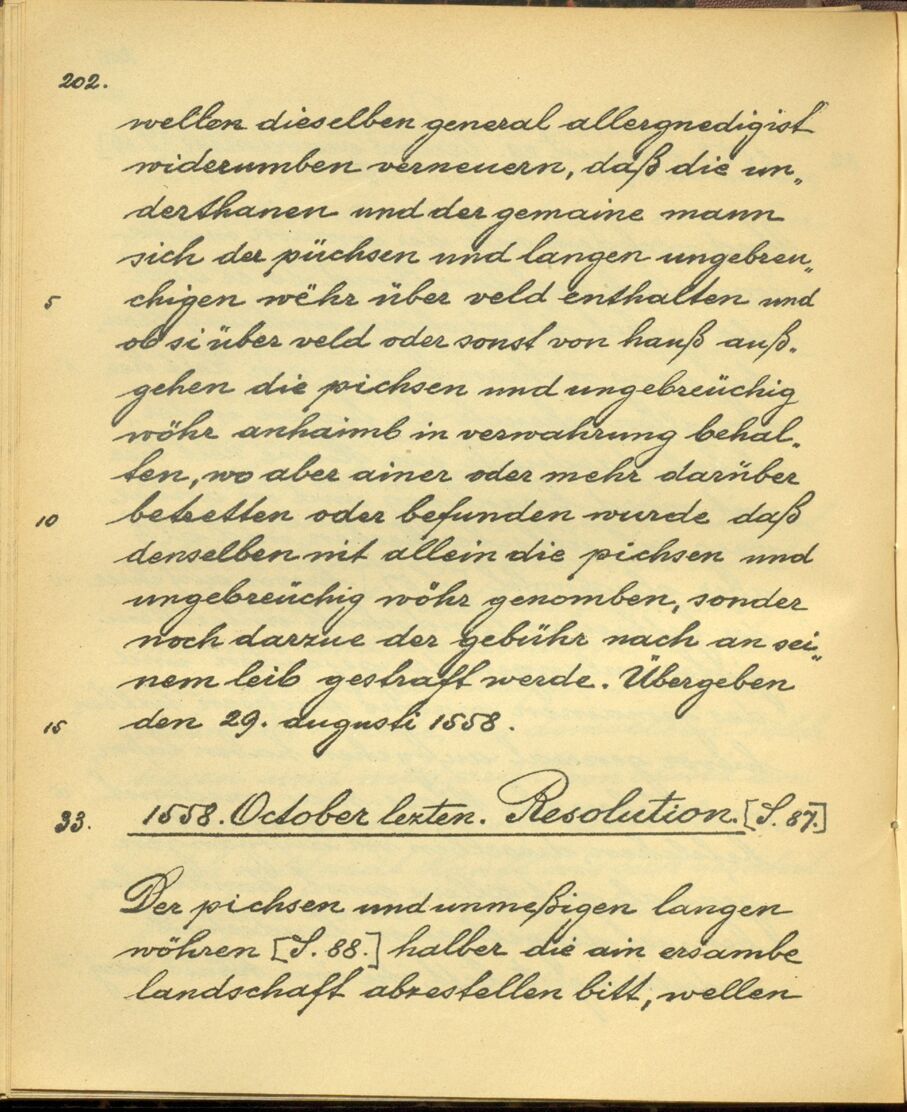 202.
wellen dieselben general allergnedigist
widerumben verneuern, daß die un„
derthanen und der gemaine mann
sich der püchsen und langen ungebreu„
5 chigen wëhr über veld enthalten und
ob si über veld oder sonst von hauß auß„
gehen die pichsen und ungebreüchig
wöhr anhaimb in verwahrung behal„
ten, wo aber ainer oder mehr darüber
10 betretten oder befunden wurde daß
denselben nit allein die pichsen und
ungebreüchig wöhr genomben, sonder
noch darzue der gebühr nach an sei„
nem leib gestrafft werde. Übergeben
15 den 29. augusti 1558.
33. 1558. October lezten. Resolution. [S. 87.]
Der pichsen und unmeßigen langen
wöhren [S. 88.] halber die ain ersambe
landschafft abzestellen bitt, wellen